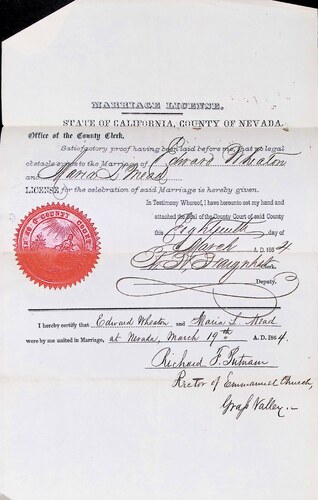 MARRIAGE LICENSE.
STATE OF CALIFORNIA, COUNTY OF NEVADA.
Office of the County Clerk.
Satisfactory proof having been laid before me, that no legal
obstacle exists to the Marriage of Edward Wheaton
and Maria S. Mead
LICENSE for the celebration of said Marriage is hereby given.
In Testimony Whereof, I have hereunto set my hand and
attached the Seal of the County Court of said County
this Eighteenth day of
March A. D. 1864
Clerk.
Deputy.
COUNTY COURT
I hereby certify that Edward Wheaton and Maria S. Mead
were by me united in Marriage, at Nevada, March 19th A. D. 1864.
Richard F. Putnam
Rector of Emmanuel Church,
Grass Valley.